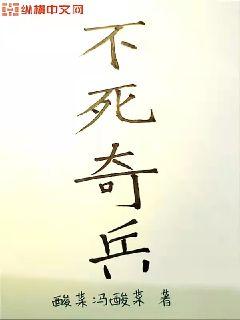 纵横中文网
不死奇兵
酸菜冯酸菜 著